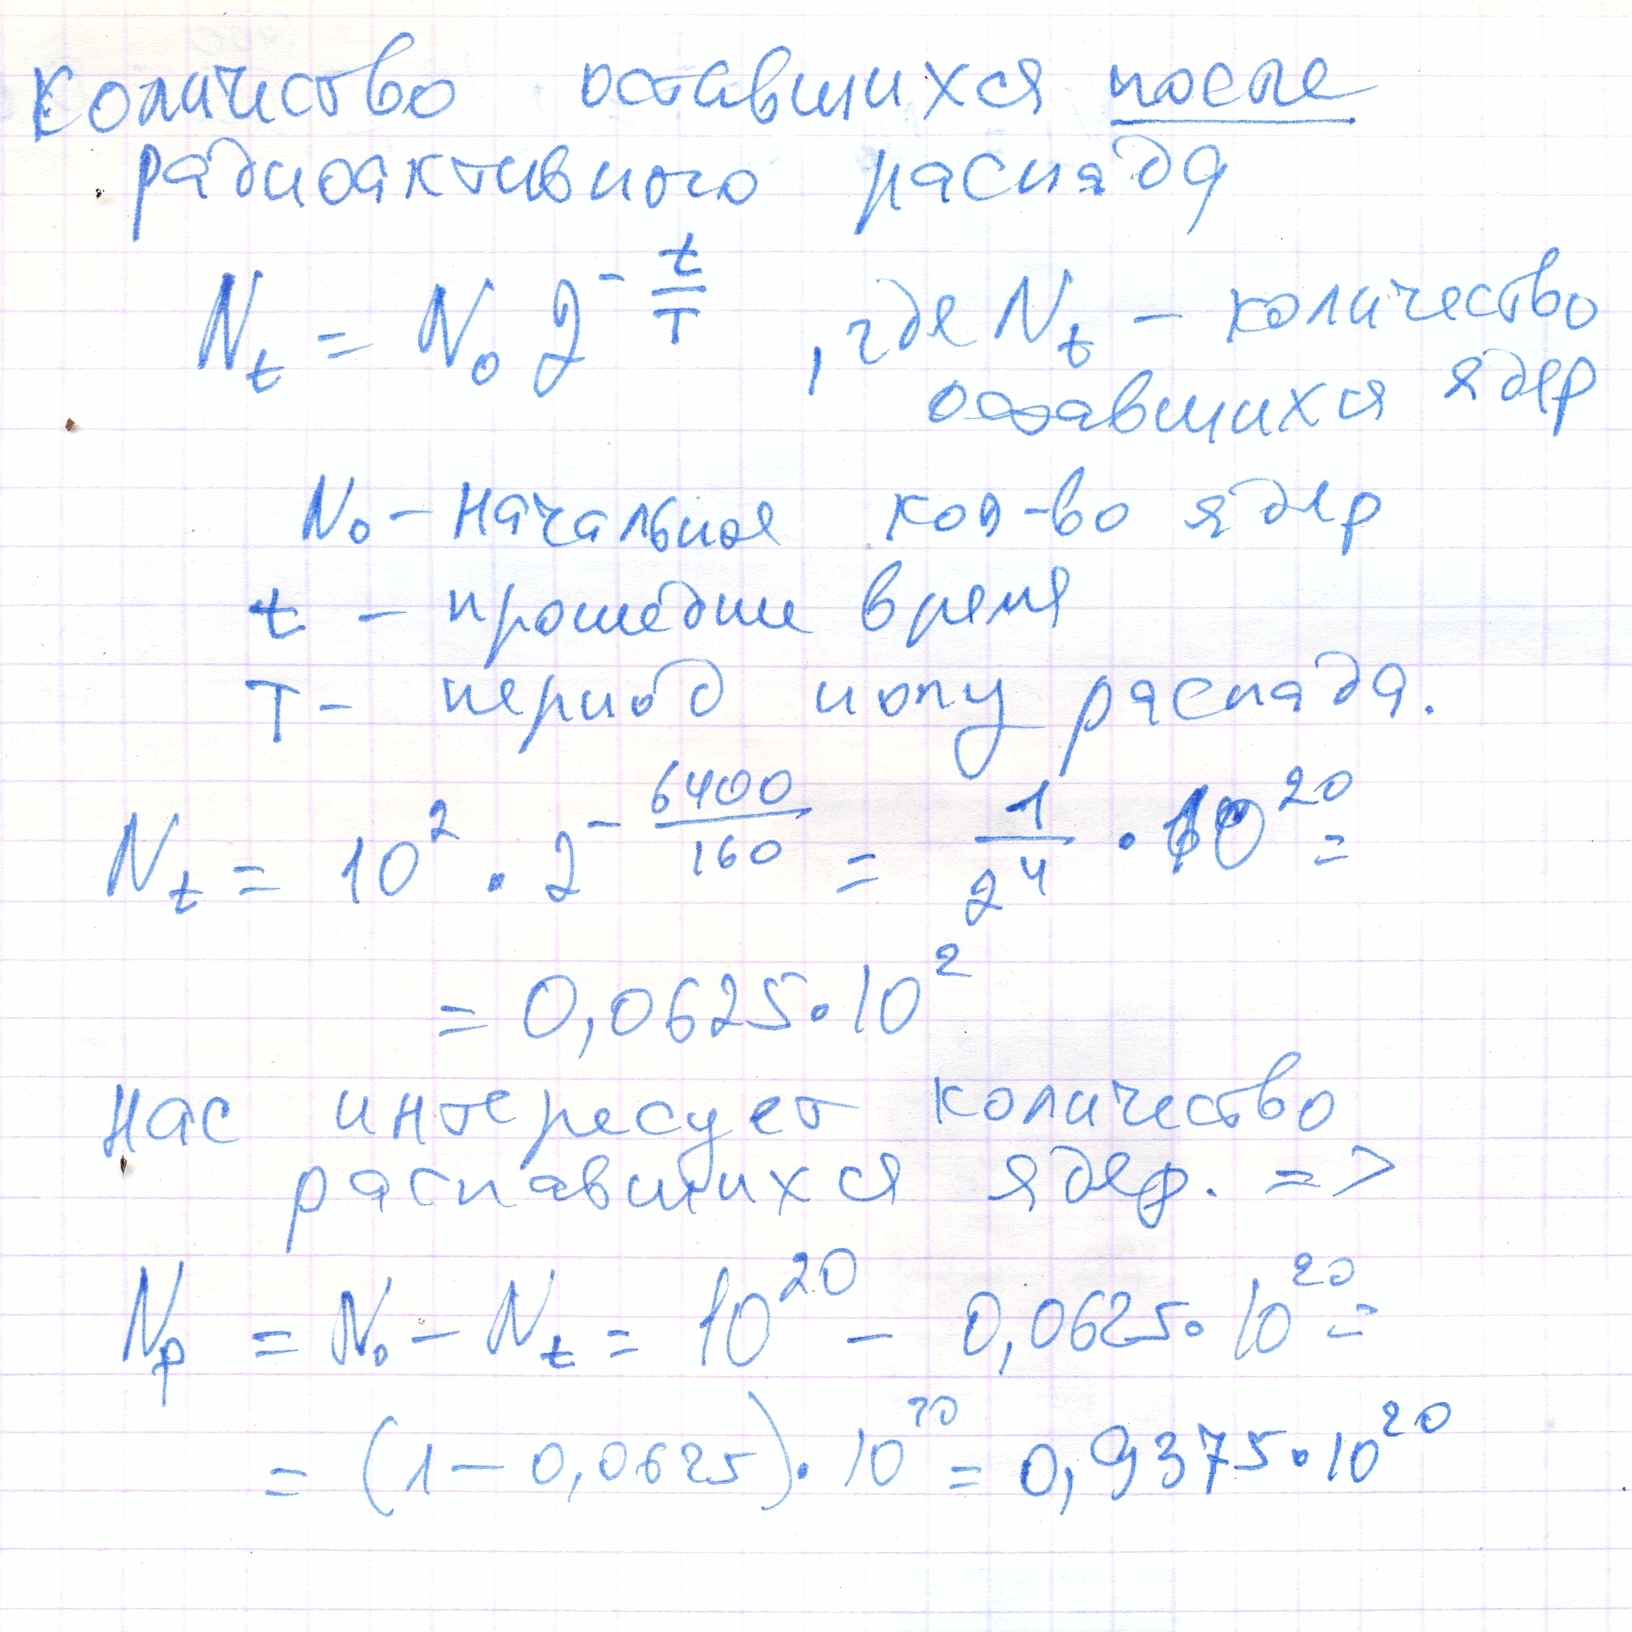 Количество оставшихся после
радиоактивного распада
N_t = N_0 2^{-\frac{t}{T}}, где N_t – количество
оставшихся ядер
N_0 – начальное кол-во ядер
t – прошедшее время
T – период полураспада.
N_t = 10^2 · 2^{-\frac{6400}{160}} = \frac{1}{2^4} · 10^{20} =
= 0,0625 · 10^2
Нас интересует количество
распавшихся ядер. =>
N_p = N_0 – N_t = 10^{20} – 0,0625 · 10^{20} =
= (1 – 0,0625) · 10^{20} = 0,9375 · 10^{20}